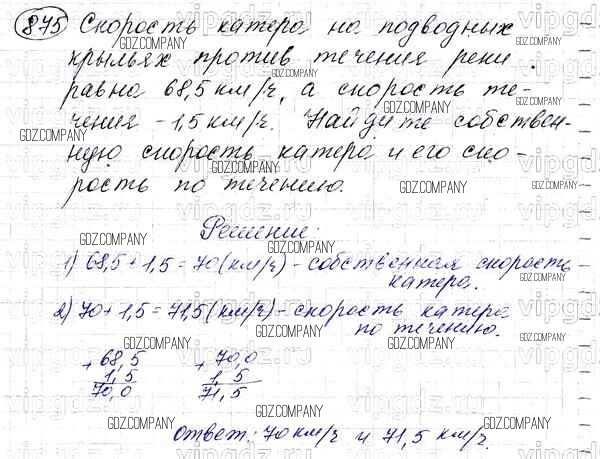 875 Скорость катера на подводных
крыльях против течения реки
равна 68,5 км/ч, а скорость те-
чения - 1,5 км/ч. Найдите собствен-
ную скорость катера и его ско-
рость по течению.
Решение:
1) 68,5 + 1,5 = 70 (км/ч) - собственная скорость
катера.
2) 70 + 1,5 = 71,5 (км/ч) - скорость катера
по течению.
+ 68,5 + 70,0
1,5 1,5
70,0 71,5
Ответ: 70 км/ч и 71,5 км/ч.
GDZ.COMPANY
vipgdz.ru